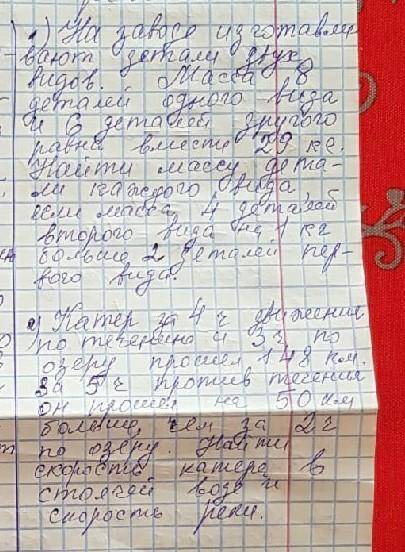 1.) На заводе изготавли-
вают детали двух
видов. Масса 8
деталей одного вида
и 6 деталей другого
равна вместе 29 кг.
Найти массу дета-
ли каждого вида,
если масса 4 деталей
второго вида на 1 кг
больше 2 деталей пер-
вого вида.
2) Катер за 4 ч движения
по течению и 3 ч по
озеру прошел 148 км.
За 5 ч против течения
он прошел на 50 км
больше, чем за 2 ч
по озеру. Найти
скорость катера в
стоячей воде и
скорость реки.